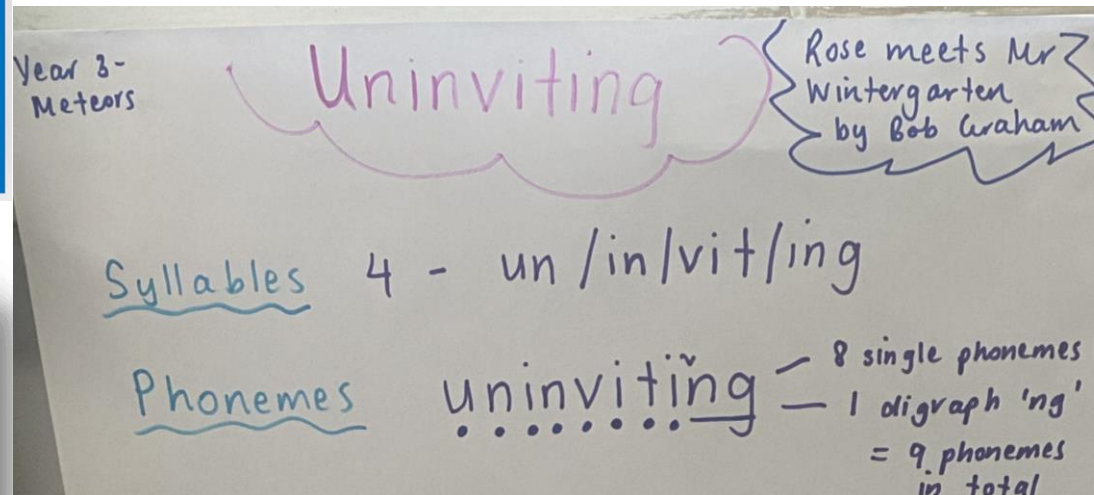 Year 3-
Meteors
Uninviting
Rose meets Mr
Wintergarten
by Bob Graham
Syllables 4 - un/in/vit/ing
Phonemes uninviting - 8 single phonemes
- 1 digraph 'ng'
= 9 phonemes
in total